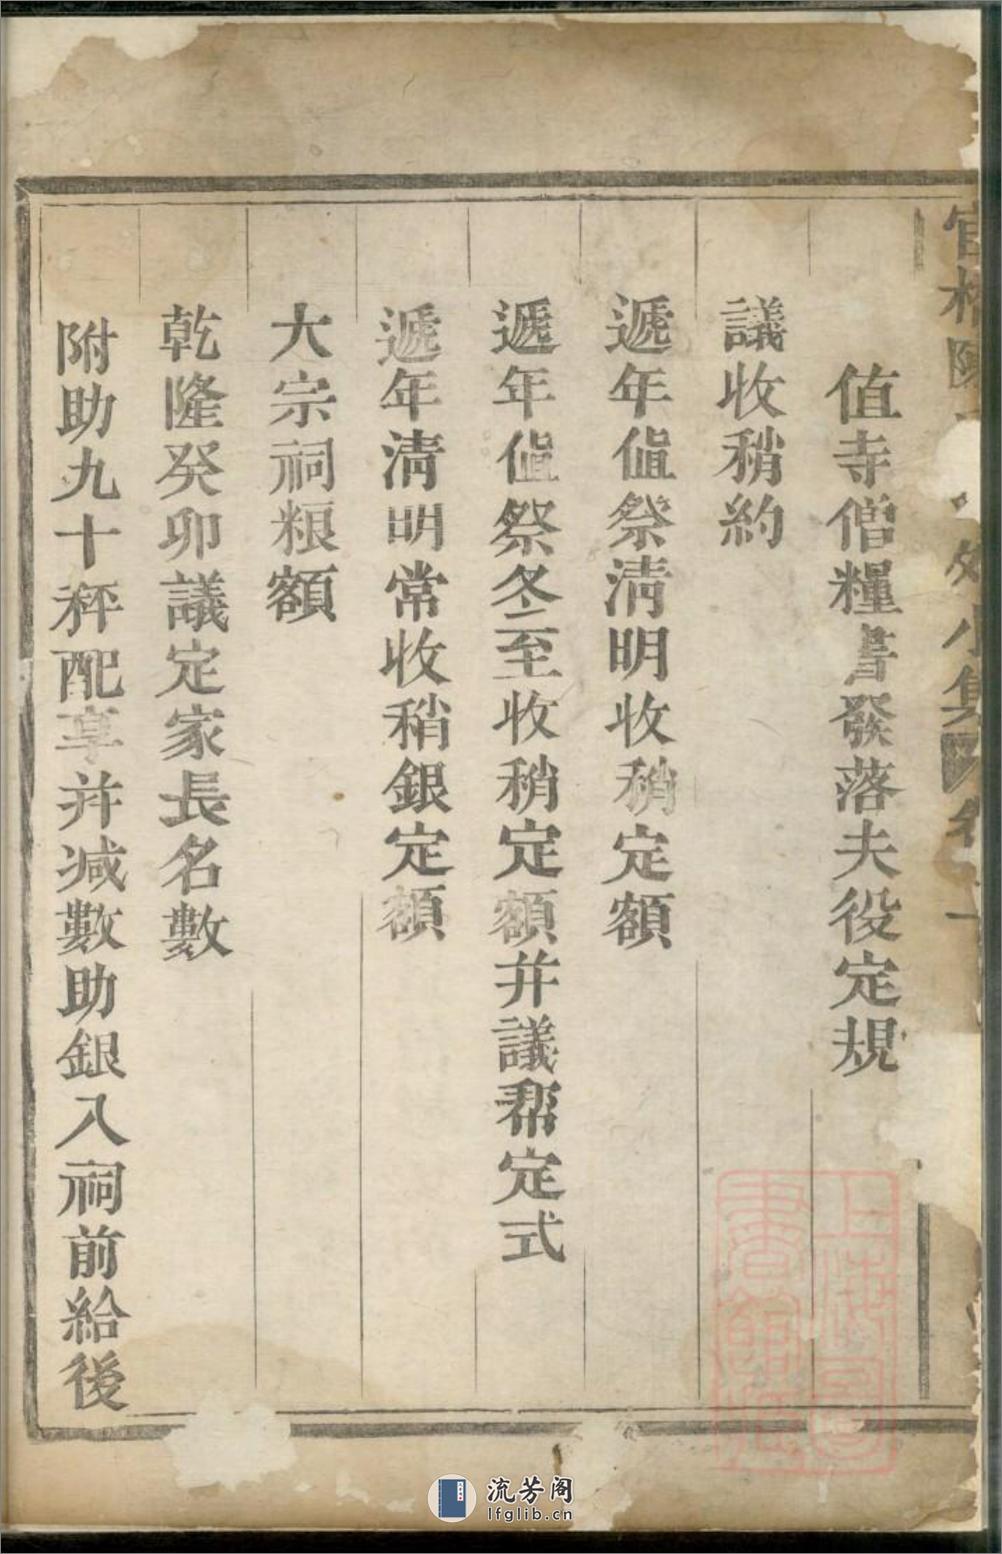 值寺僧糧書發落夫役定規
議收稍約
遞年值祭淸明收稍定額
遞年值祭冬至收稍定額并議帮定式
遞年淸明常收稍銀定額
大宗祠粮額
乾隆癸卯議定家長名數
附助九十秤配享并减數助銀入祠前給後
上海圖書館藏
流芳阁
lfglib.cn